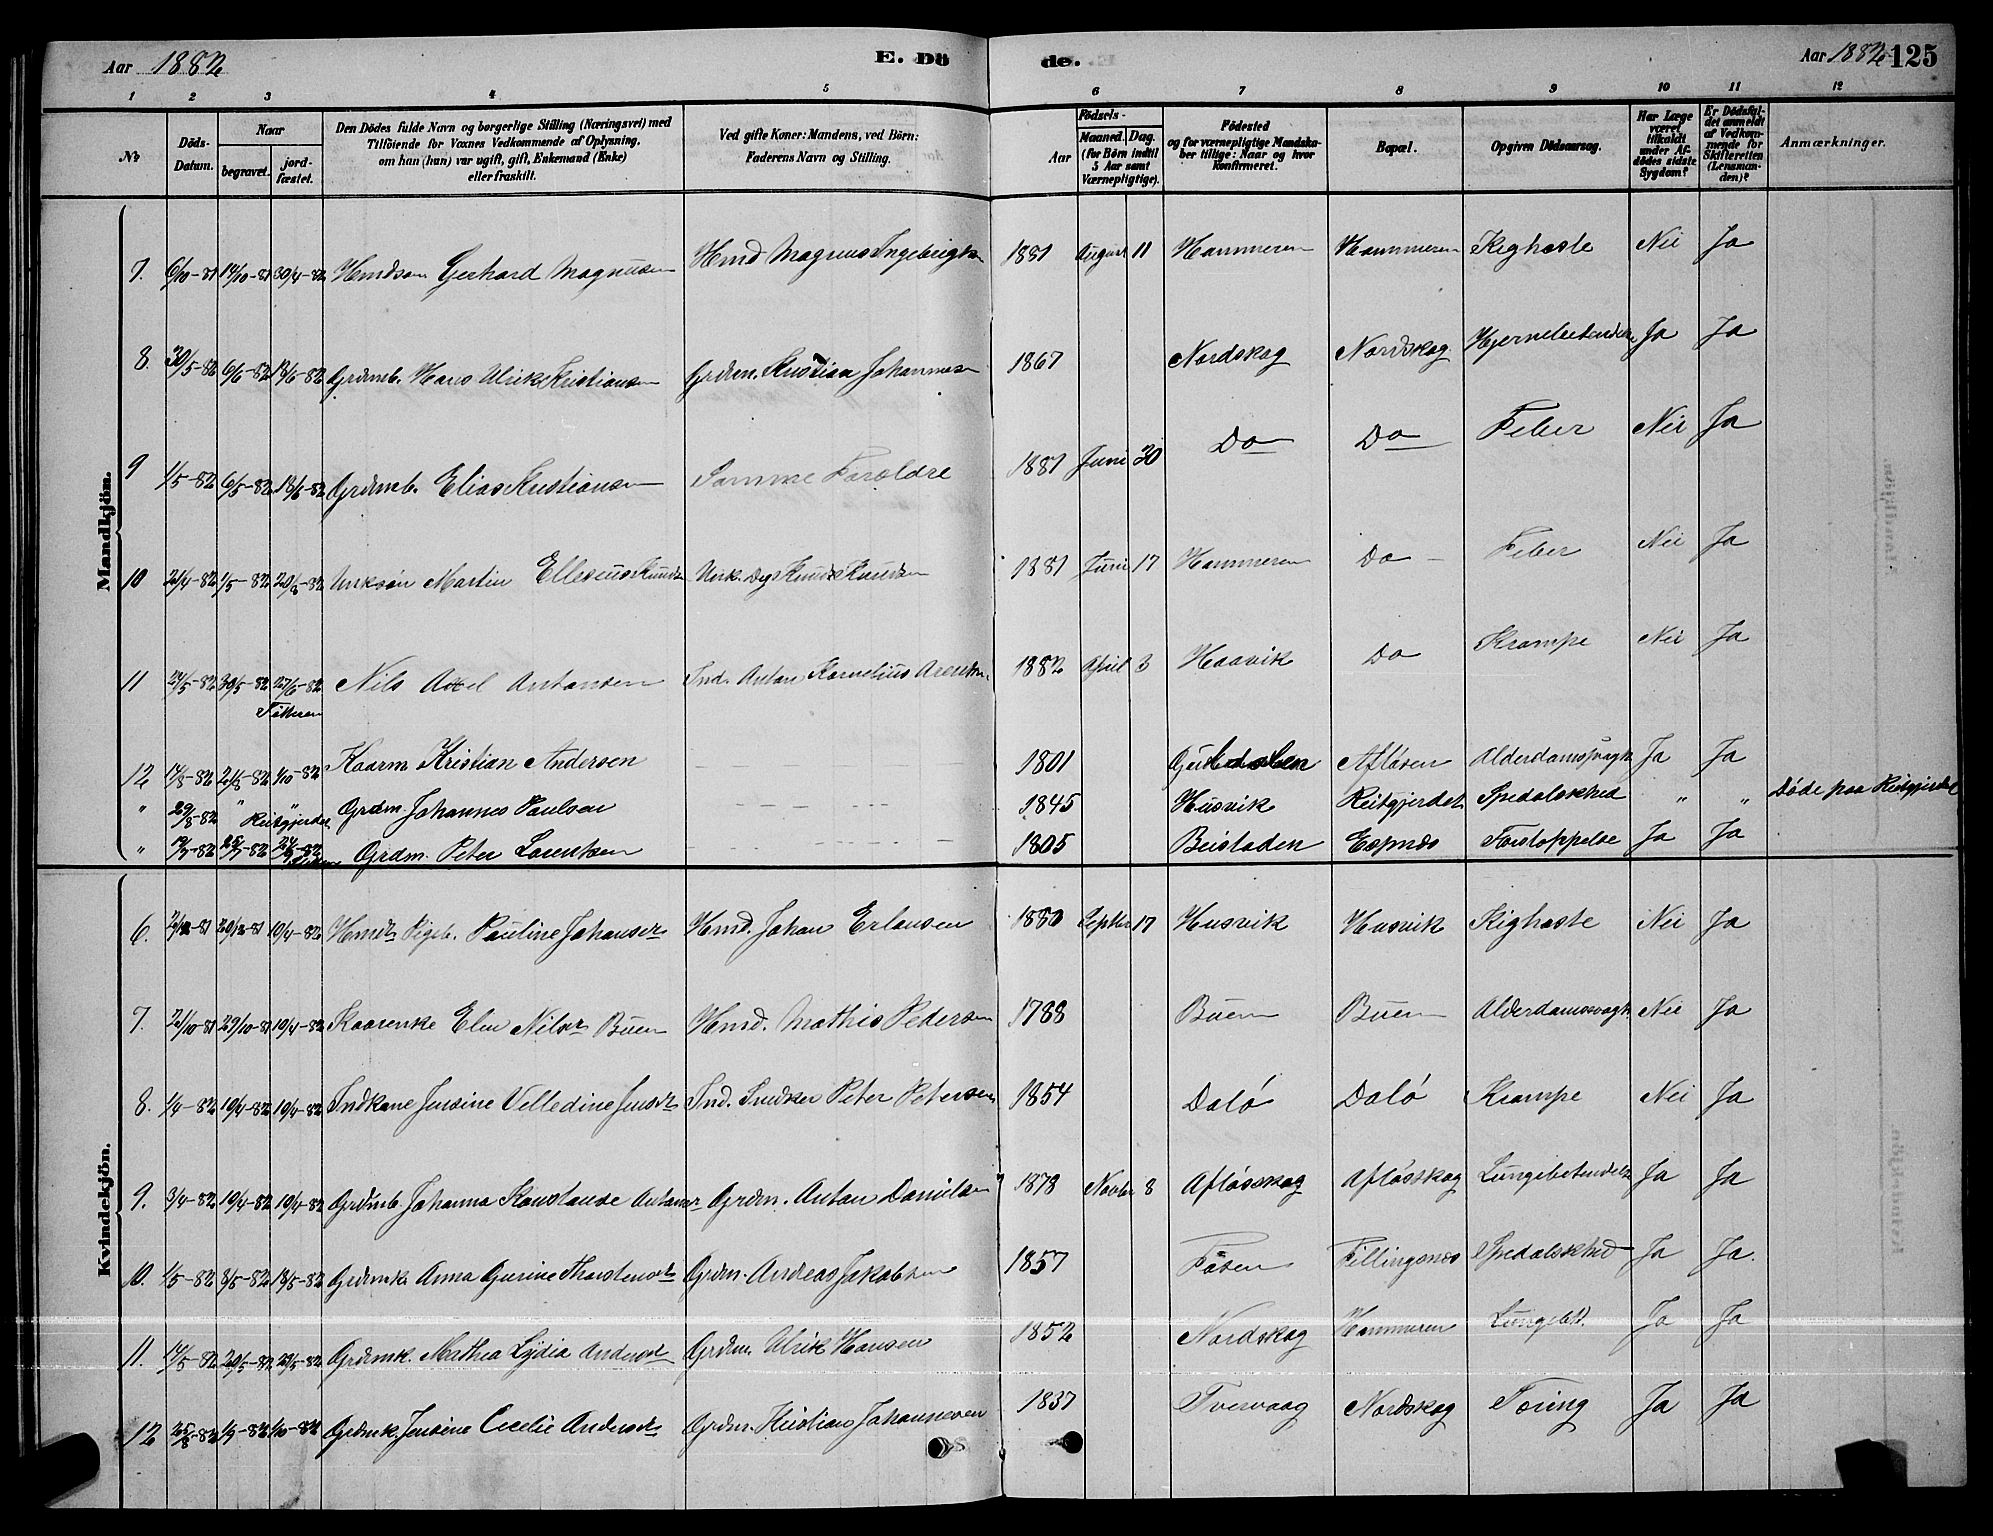 Aar 1882 E. Dö de. Aar 1882 125
1 2 3 4 5 6 7 8 9 10 11 12
No Döds-Datum. Naar begravet. jordfæstet. Den Dödes fulde Navn og borgerlige Stilling (Næringsvei) med Tilföiende for Voxnes Vedkommende af Oplysning, om han (hun) var ugift, gift, Enkemand (Enke) eller fraskilt. Ved gifte Koner: Mandens, ved Börn: Faderens Navn og Stilling. Födsels- Aar Maaned. Dag. (for Börn indtil 5 Aar samt Værnepligtige). Födested og for værnepligtige Mandskaber tillige: Naar og hvor Konfirmeret. Bopæl. Opgiven Dödsaarsag. Har Læge været tilkaldt under Afdödes sidste Sygdom? Er Dödsfaldet anmeldt af Vedkommende for Skifteretten (Lensmanden)? Anmærkninger.
Mandkjön.
7. 6/10-81 14/10-81 30/4-82 Hmdsøn Gerhard Magnusen Hmd Magnus Ingebrigtsn 1881 August 11 Hammeren Hammeren Kighoste Nei Ja
8. 30/5-82 6/6-82 18/6-82 Grdmb. Hans Ulrik Kristiansen Grdm. Kristian Johannesen 1867 Nordskag Nordskag Hjernebetændelse Ja Ja
9 1/5-82 6/5-82 18/6-82 Grdmb. Elias Kristiansen Samme Forældre 1881 Juni 30 Do Do Feber Nei Ja
10 21/4-82 1/5-82 20/8-82 Martin Elleseus Knuds Knudsen 1881 Juni 17 Hammeren Do Feber Nei Ja
11 24/5-82 30/5-82 27/6-82 Nils Axel Antonsen Ind. Anton Kornelius 1882 April 3 Haavik Do Krampe Nei Ja
Titteren
12 14/8-82 21/8-82 1/10-82 Kaarm Kristian Andersen 1801 Afløsen Alderdomssvagh Ja Ja
" 29/8-82 " " Reitgjerdet Grdm. Johannes Paulsen 1845 Husvik Reitgjerdet Spedalskhed " " Døde paa Reitgjerdet
" 12/7-82 25/7-82 Grdm. Peter Lorentsen 1805 Beistaden Espnæs Forstoppelse Ja Ja
Kvindekjön.
6. 2/12-81 20/12-81 10/4-82 Pigeb. Pauline Johansdr Hmd. Johan Erlansen 1880 Septbr 17 Husvik Husvik Kighoste Nei Ja
7. 21/10-81 29/10-81 10/4-82 Kaarenke Elen Nilsdr Buen Hmd. Mathis Pedersen 1788 Buen Buen Alderdomssvagh. Nei Ja
8. 1/4-82 10/4-82 10/4-82 Indkone Jensine Velledine Jensdr Ind. Snedker Peter Petersen 1854 Dolö Dolö Krampe Nei Ja
9. 3/4-82 10/4-82 10/4-82 Grdmb. Johanna Konstanse Antonsdr Grdm. Anton Danielsen 1878 Novbr 8 Afløsskag Afløsskag Lungebetændelse Ja Ja
10. 1/5-82 8/5-82 18/5-82 Grdmk. Anna Gurine Thorstensdr Grdm. Andreas Jakobsen 1857 Fosen Fillingsnæs Spedalskhed Ja Ja.
11. 14/5-82 20/5-82 29/5-82 Grdmk. Mathea Lydia Andersdr Grdm. Ulrik Hansen 1852 Nordskag Hammeren Lungebet. Ja Ja
12 25/8-82 1/9-82 1/10-82 Grdmk. Jensine Cecelie Andersdr Grdm. Kristian Johannesen 1837 Tvervaag Nordskag Tæring Ja Ja